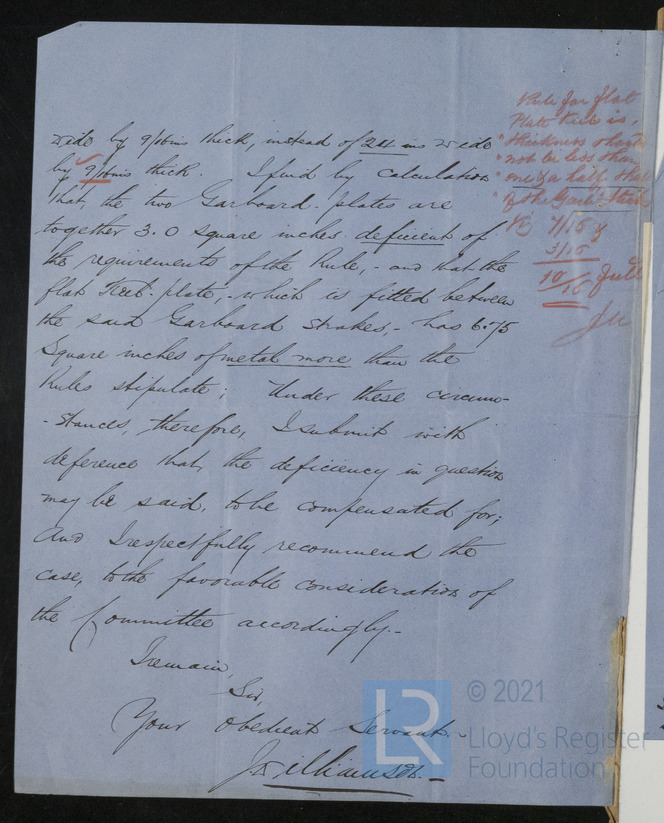 wide by 9/16ins thick, instead of 24 ins wide
by 9/16ins thick. I find by calculation
that, the two Garboard-plates are
together 3.0 square inches deficient of
the requirements of the Rule, - and that the
flat Keel-plate, - which is fitted between
the said Garboard Strakes, - has 6.75
Square inches of metal more than the
Rules stipulate; Under these circum-
-stances, therefore, I submit with
deference that, the deficiency in question
may be said, to be compensated for;
And I respectfully recommend the
case, to the favorable consideration of
the Committee accordingly. -
I remain,
Sir,
Your obedient Servant -
J Williamson. -
Rule for flat
Plate Keel is,
"thickness should
"not be less than
"one & a half that
"of the Garbd Strakes
7/16 &
3/16
10/16 full
LR
© 2021
Lloyd's Register
Foundation